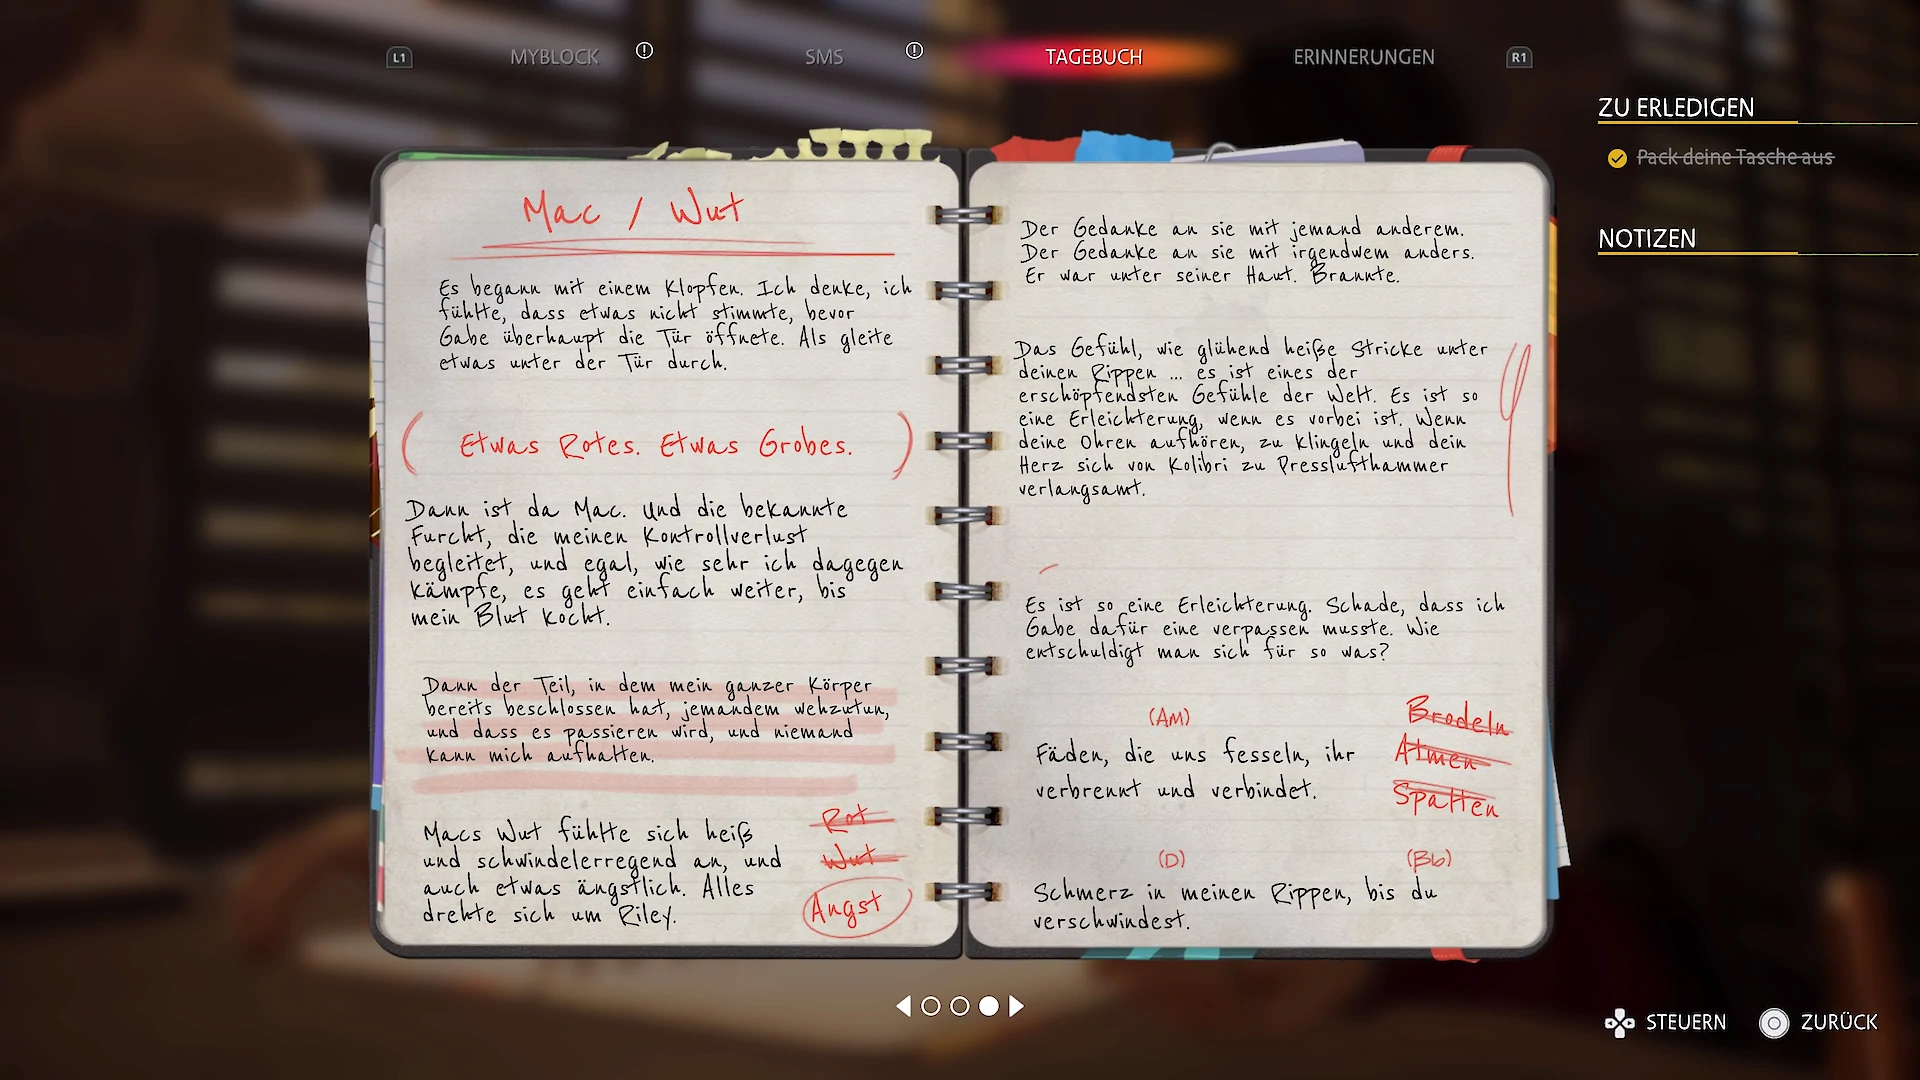 L1
MYBLOCK
SMS
TAGEBUCH
ERINNERUNGEN
R1
ZU ERLEDIGEN
Pack deine Tasche aus
NOTIZEN
Mac / Wut
Es begann mit einem Klopfen. Ich denke, ich
fühlte, dass etwas nicht stimmte, bevor
Gabe überhaupt die Tür öffnete. Als gleite
etwas unter der Tür durch.
( Etwas Rotes. Etwas Grobes. )
Dann ist da Mac. Und die bekannte
Furcht, die meinen Kontrollverlust
begleitet, und egal, wie sehr ich dagegen
kämpfe, es geht einfach weiter, bis
mein Blut kocht.
Dann der Teil, in dem mein ganzer Körper
bereits beschlossen hat, jemandem wehzutun,
und dass es passieren wird, und niemand
kann mich aufhalten.
Macs Wut fühlte sich heiß
und schwindelerregend an, und
auch etwas ängstlich. Alles
drehte sich um Riley.
Rot
Wut
Angst
Der Gedanke an sie mit jemand anderem.
Der Gedanke an sie mit irgendwem anders.
Er war unter seiner Haut. Brannte.
Das Gefühl, wie glühend heiße Stricke unter
deinen Rippen ... es ist eines der
erschöpfendsten Gefühle der Welt. Es ist so
eine Erleichterung, wenn es vorbei ist. Wenn
deine Ohren aufhören, zu klingeln und dein
Herz sich von Kolibri zu Presslufthammer
verlangsamt.
Es ist so eine Erleichterung. Schade, dass ich
Gabe dafür eine verpassen musste. Wie
entschuldigt man sich für so was?
(Am)
Fäden, die uns fesseln, ihr
verbrennt und verbindet.
Brodeln
Atmen
Spalten
(D) (Bb)
Schmerz in meinen Rippen, bis du
verschwindest.
STEUERN
ZURÜCK